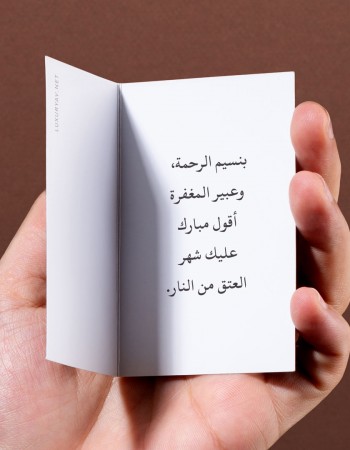 بنسيم الرحمة،
وعبير المغفرة
أقول مبارك
عليك شهر
العتق من النار.
LUXURYAY.NET